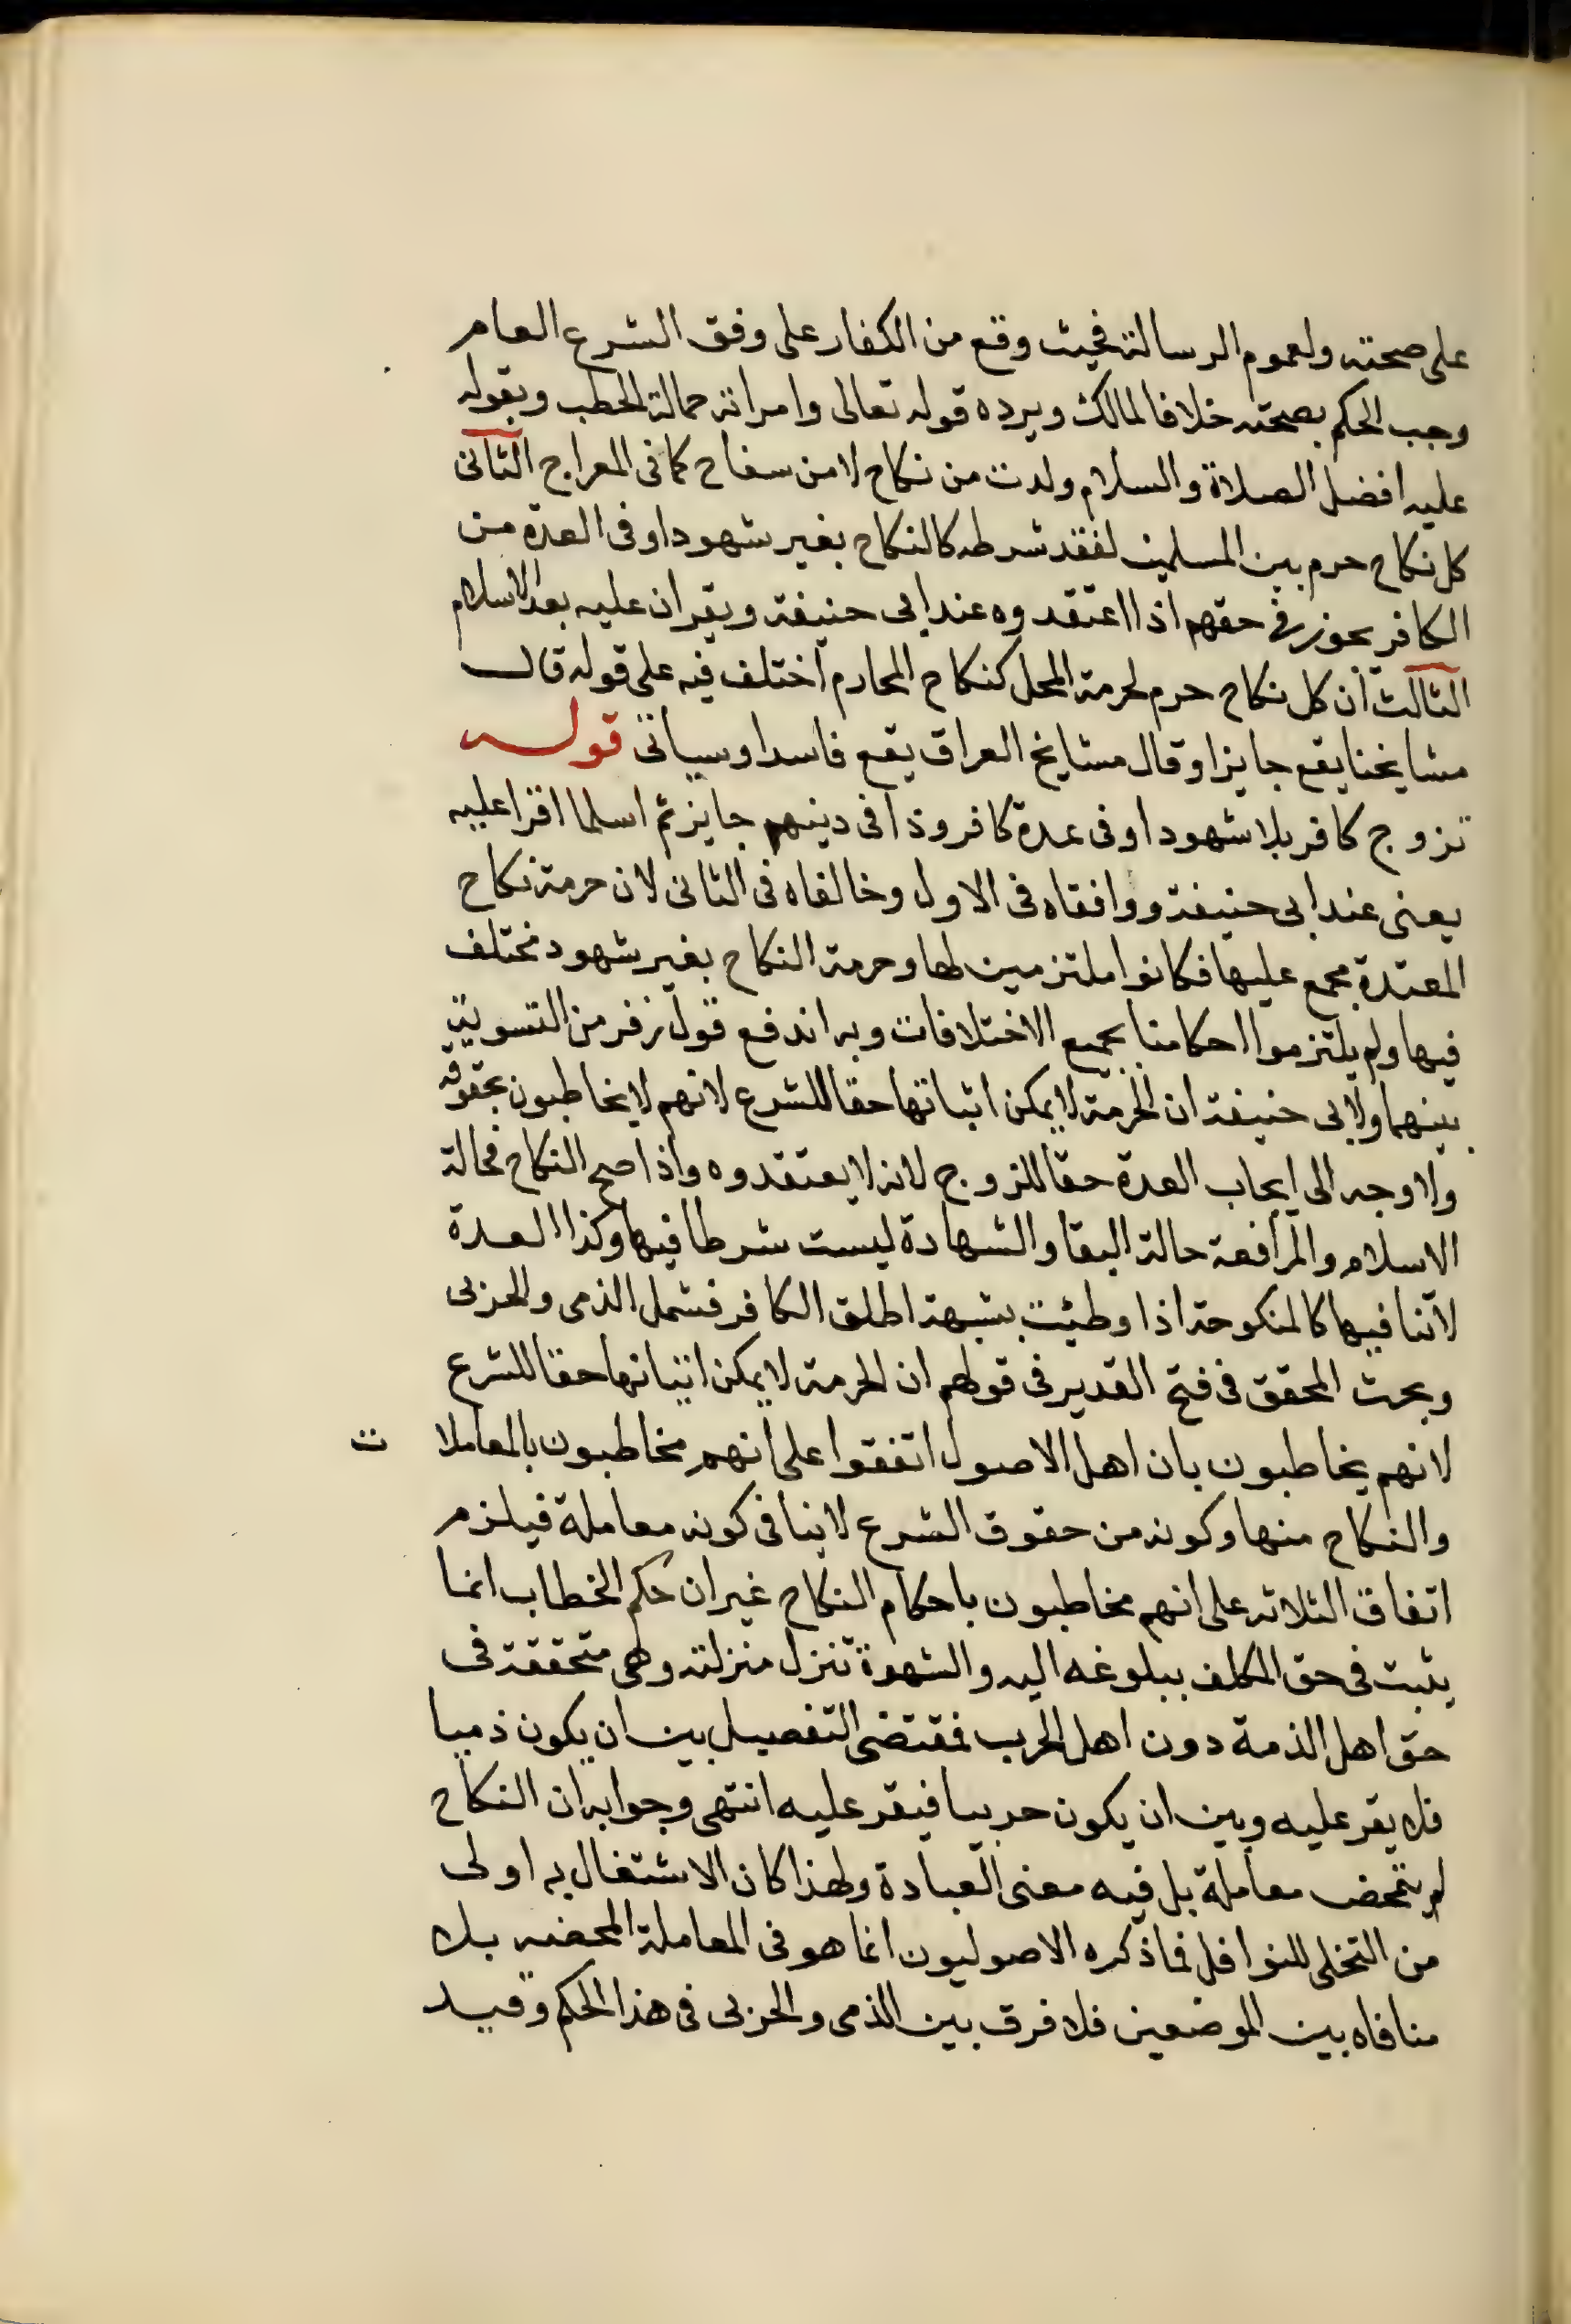 على صحته ولعموم الرسالة فحيث وقع من الكفار على وفق الشرع العام
وجب الحكم بصحته خلافا لمالك ويرده قوله تعالى وامراته حمالة الحطب وبقوله
عليه افضل الصلاة والسلام ولدت من نكاح لا من سفاح كما فى المعراج الثانى
كل نكاح حرم بين المسلمين لفقد شرطه كالنكاح بغير شهود او فى العدة من
الكافر يجوز فى حقهم اذا اعتقدوه عند ابى حنيفة ويقران عليه بعد الاسلام
الثالث ان كل نكاح حرم لحرمة المحل كنكاح المحارم اختلف فيه على قوله قال
مشايخنا يقع جايزا وقال مشايخ العراق يقع فاسدا وسياتى قوله
تزوج كافر بلا شهود او فى عدة كافر وذا فى دينهم جايز ثم اسلما اقرا عليه
يعنى عند ابى حنيفة ووافقاه فى الاول وخالفاه فى الثانى لان حرمة نكاح
المعتدة مجمع عليها فكانوا ملتزمين لها وحرمة النكاح بغير شهود مختلف
فيها ولم يلتزموا احكامنا بجميع الاختلافات وبه اندفع قول زفر من التسوية
بينهما ولابى حنيفة ان الحرمة لا يمكن اثباتها حقا للشرع لانهم لا يخاطبون بحقوقه
ولا وجه الى ايجاب العدة حقا للزوج لانه لا يعتقدوه واذا صح النكاح فحالة
الاسلام والمرافعة حالة البقا والشهادة ليست شرطا فيها وكذا العدة
لا تنافيها كالمنكوحة اذا وطئت بشبهة اطلق الكافر فشمل الذمى والحربى
وبحث المحقق فى فتح القدير فى قولهم ان الحرمة لا يمكن اثباتها حقا للشرع
لانهم يخاطبون بان اهل الاصول اتفقوا على انهم مخاطبون بالمعاملات
والنكاح منها وكونه من حقوق الشرع لا ينافى كونه معاملة فيلزم
اتفاق الثلاثه على انهم مخاطبون باحكام النكاح غير ان حكم الخطاب انما
يثبت فى حق المكلف ببلوغه اليه والشهرة تنزل منزلته وهى متحققة فى
حق اهل الذمة دون اهل الحرب فمقتضى التفصيل بين ان يكون ذميا
فلا يقر عليه وبين ان يكون حربيا فيقر عليه انتهى وجوابه ان النكاح
لم يتمحض معاملة بل فيه معنى العبادة ولهذا كان الاشتغال به اولى
من التخلى للنوافل فما ذكره الاصوليون انما هو فى المعاملة المحضه بلا
منافاه بين الموضعين فلا فرق بين الذمى والحربى فى هذا الحكم وقيد